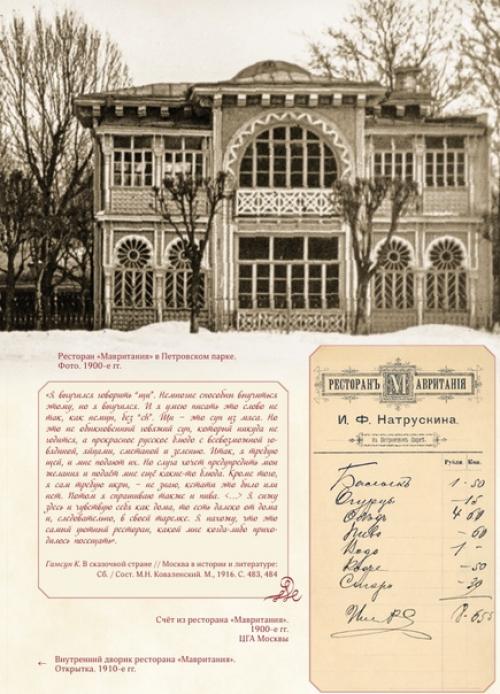 Ресторан «Мавритания» в Петровском парке.
Фото. 1900-е гг.
«Я выучился говорить "щи". Немногие способны выучиться
этому, но я выучился. И я умею писать это слово не
так, как немцы, без "ch". Щи – это суп из мяса. Но
это не обыкновенный говяжий суп, который никуда не
годится, а прекрасное русское блюдо с всевозможной го-
вядиной, яйцами, сметаной и зеленью. Итак, я требую
щей, и мне подают их. Но слуга хочет предупредить мои
желания и подаёт мне ещё какие-то блюда. Кроме того,
я сам требую икры, – не знаю, кстати это было или
нет. Потом я спрашиваю также и пива. <...> Я сижу
здесь и чувствую себя как дома, то есть далеко от дома
и, следовательно, в своей тарелке. Я нахожу, что это
самый уютный ресторан, какой мне когда-либо прихо-
дилось посещать».
Гамсун К. В сказочной стране // Москва в истории и литературе:
Сб. / Сост. М.Н. Коваленский. М., 1916. С. 483, 484
Счёт из ресторана «Мавритания».
1900-е гг.
ЦГА Москвы
← Внутренний дворик ресторана «Мавритания».
Открытка. 1910-е гг.
РЕСТОРАНЪ МАВРИТАНІЯ
И. Ф. Натрускина.
въ Петровскомъ Паркѣ.
Рубли Коп.
1 - 50
Огурцы - 15
4
Пиво - 60
Вода 1 -
- 50
Сигары - 30
8-